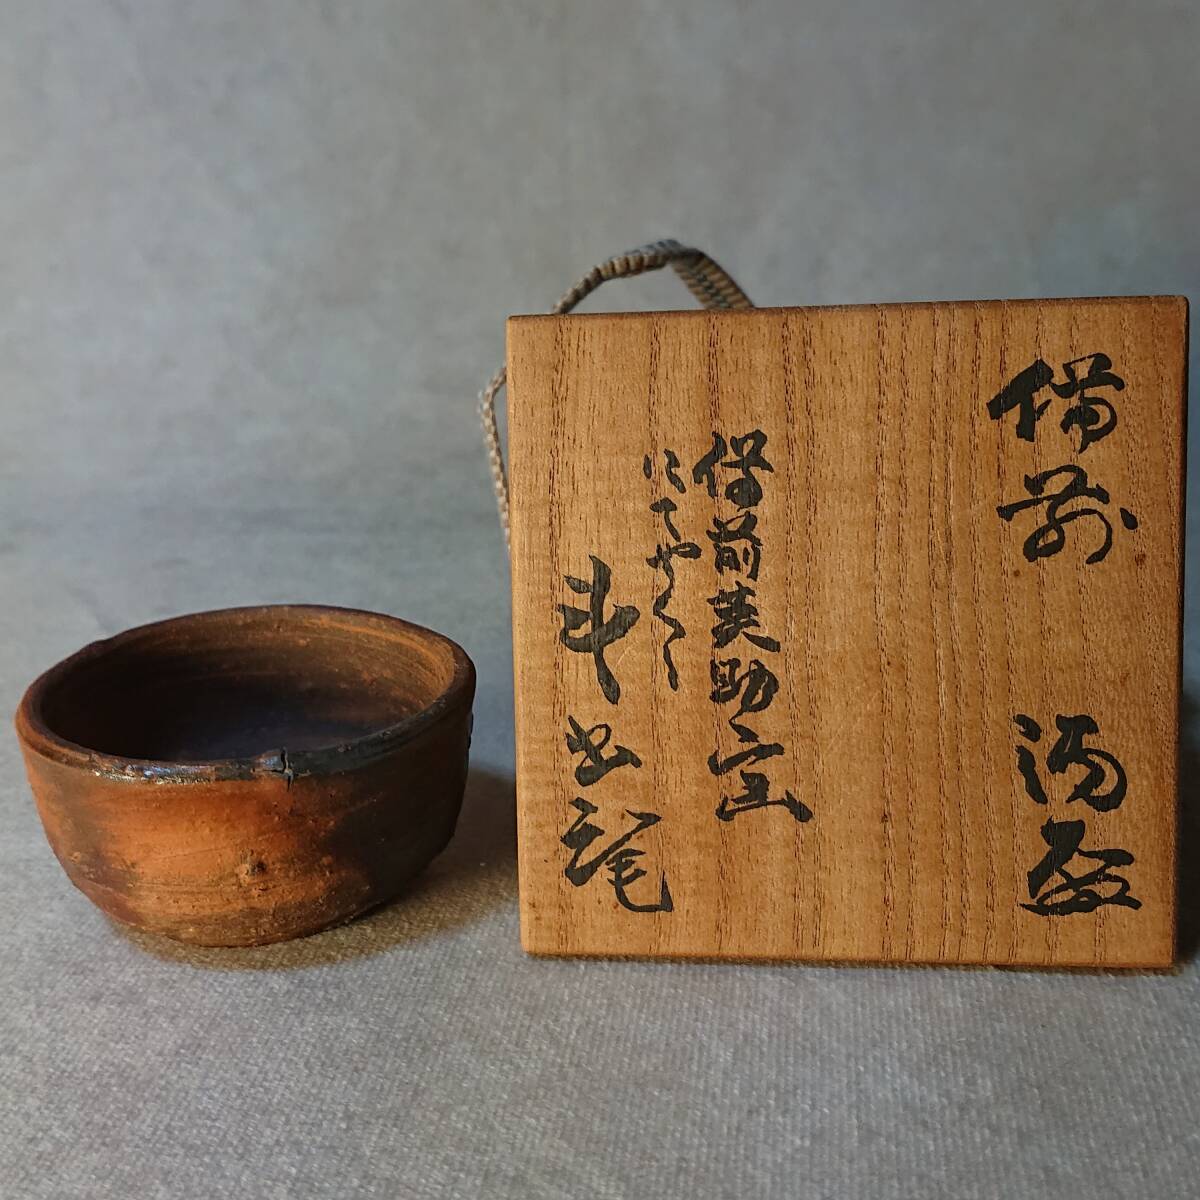 備前 酒盃
備前英助窯
にてやく
斗出庵